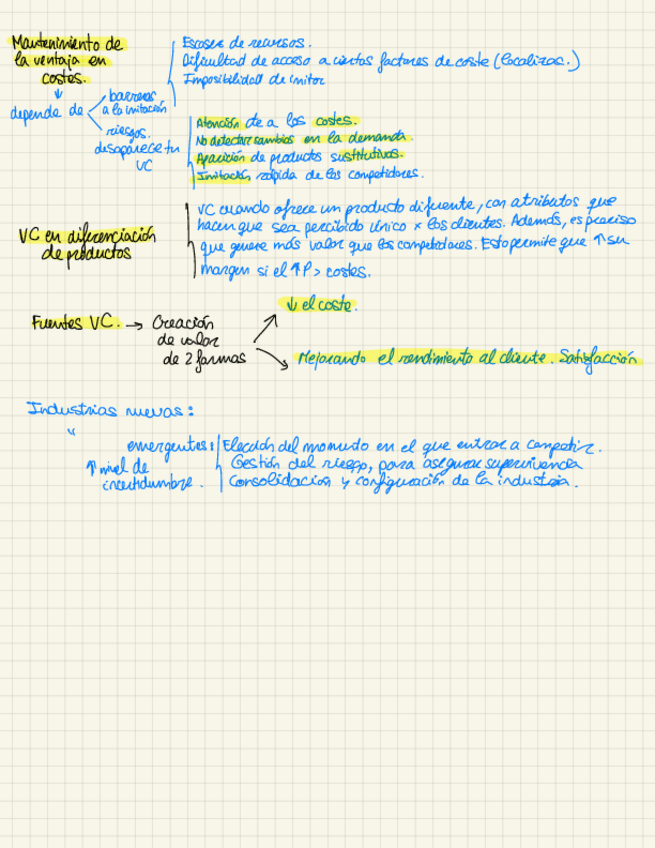 Mantenimiento de
la ventaja en
costes.
↓
depende de
barreras
a la imitación
Escasez de recursos.
Dificultad de acceso a ciertos factores de coste (localizac.)
Imposibilidad de imitar
riesgos.
desaparece tu
VC
Atención de a los costes.
No detectar cambios en la demanda.
Aparición de productos sustitutivos.
Imitación rápida de los competidores.
VC en diferenciación
de productos
VC cuando ofrece un producto diferente, con atributos que
hacen que sea percibido único x los clientes. Además, es preciso
que genere más valor que los competidores. Esto permite que ↑ su
margen si el ↑P > costes.
Fuentes VC. → Creación
de valor
de 2 formas
↓ el coste.
Mejorando el rendimiento al cliente. Satisfacción
Industrias nuevas:
" emergentes:
↑ nivel de
incertidumbre.
Elección del momento en el que entrar a competir.
Gestión del riesgo, para asegurar supervivencia
Consolidación y configuración de la industria.